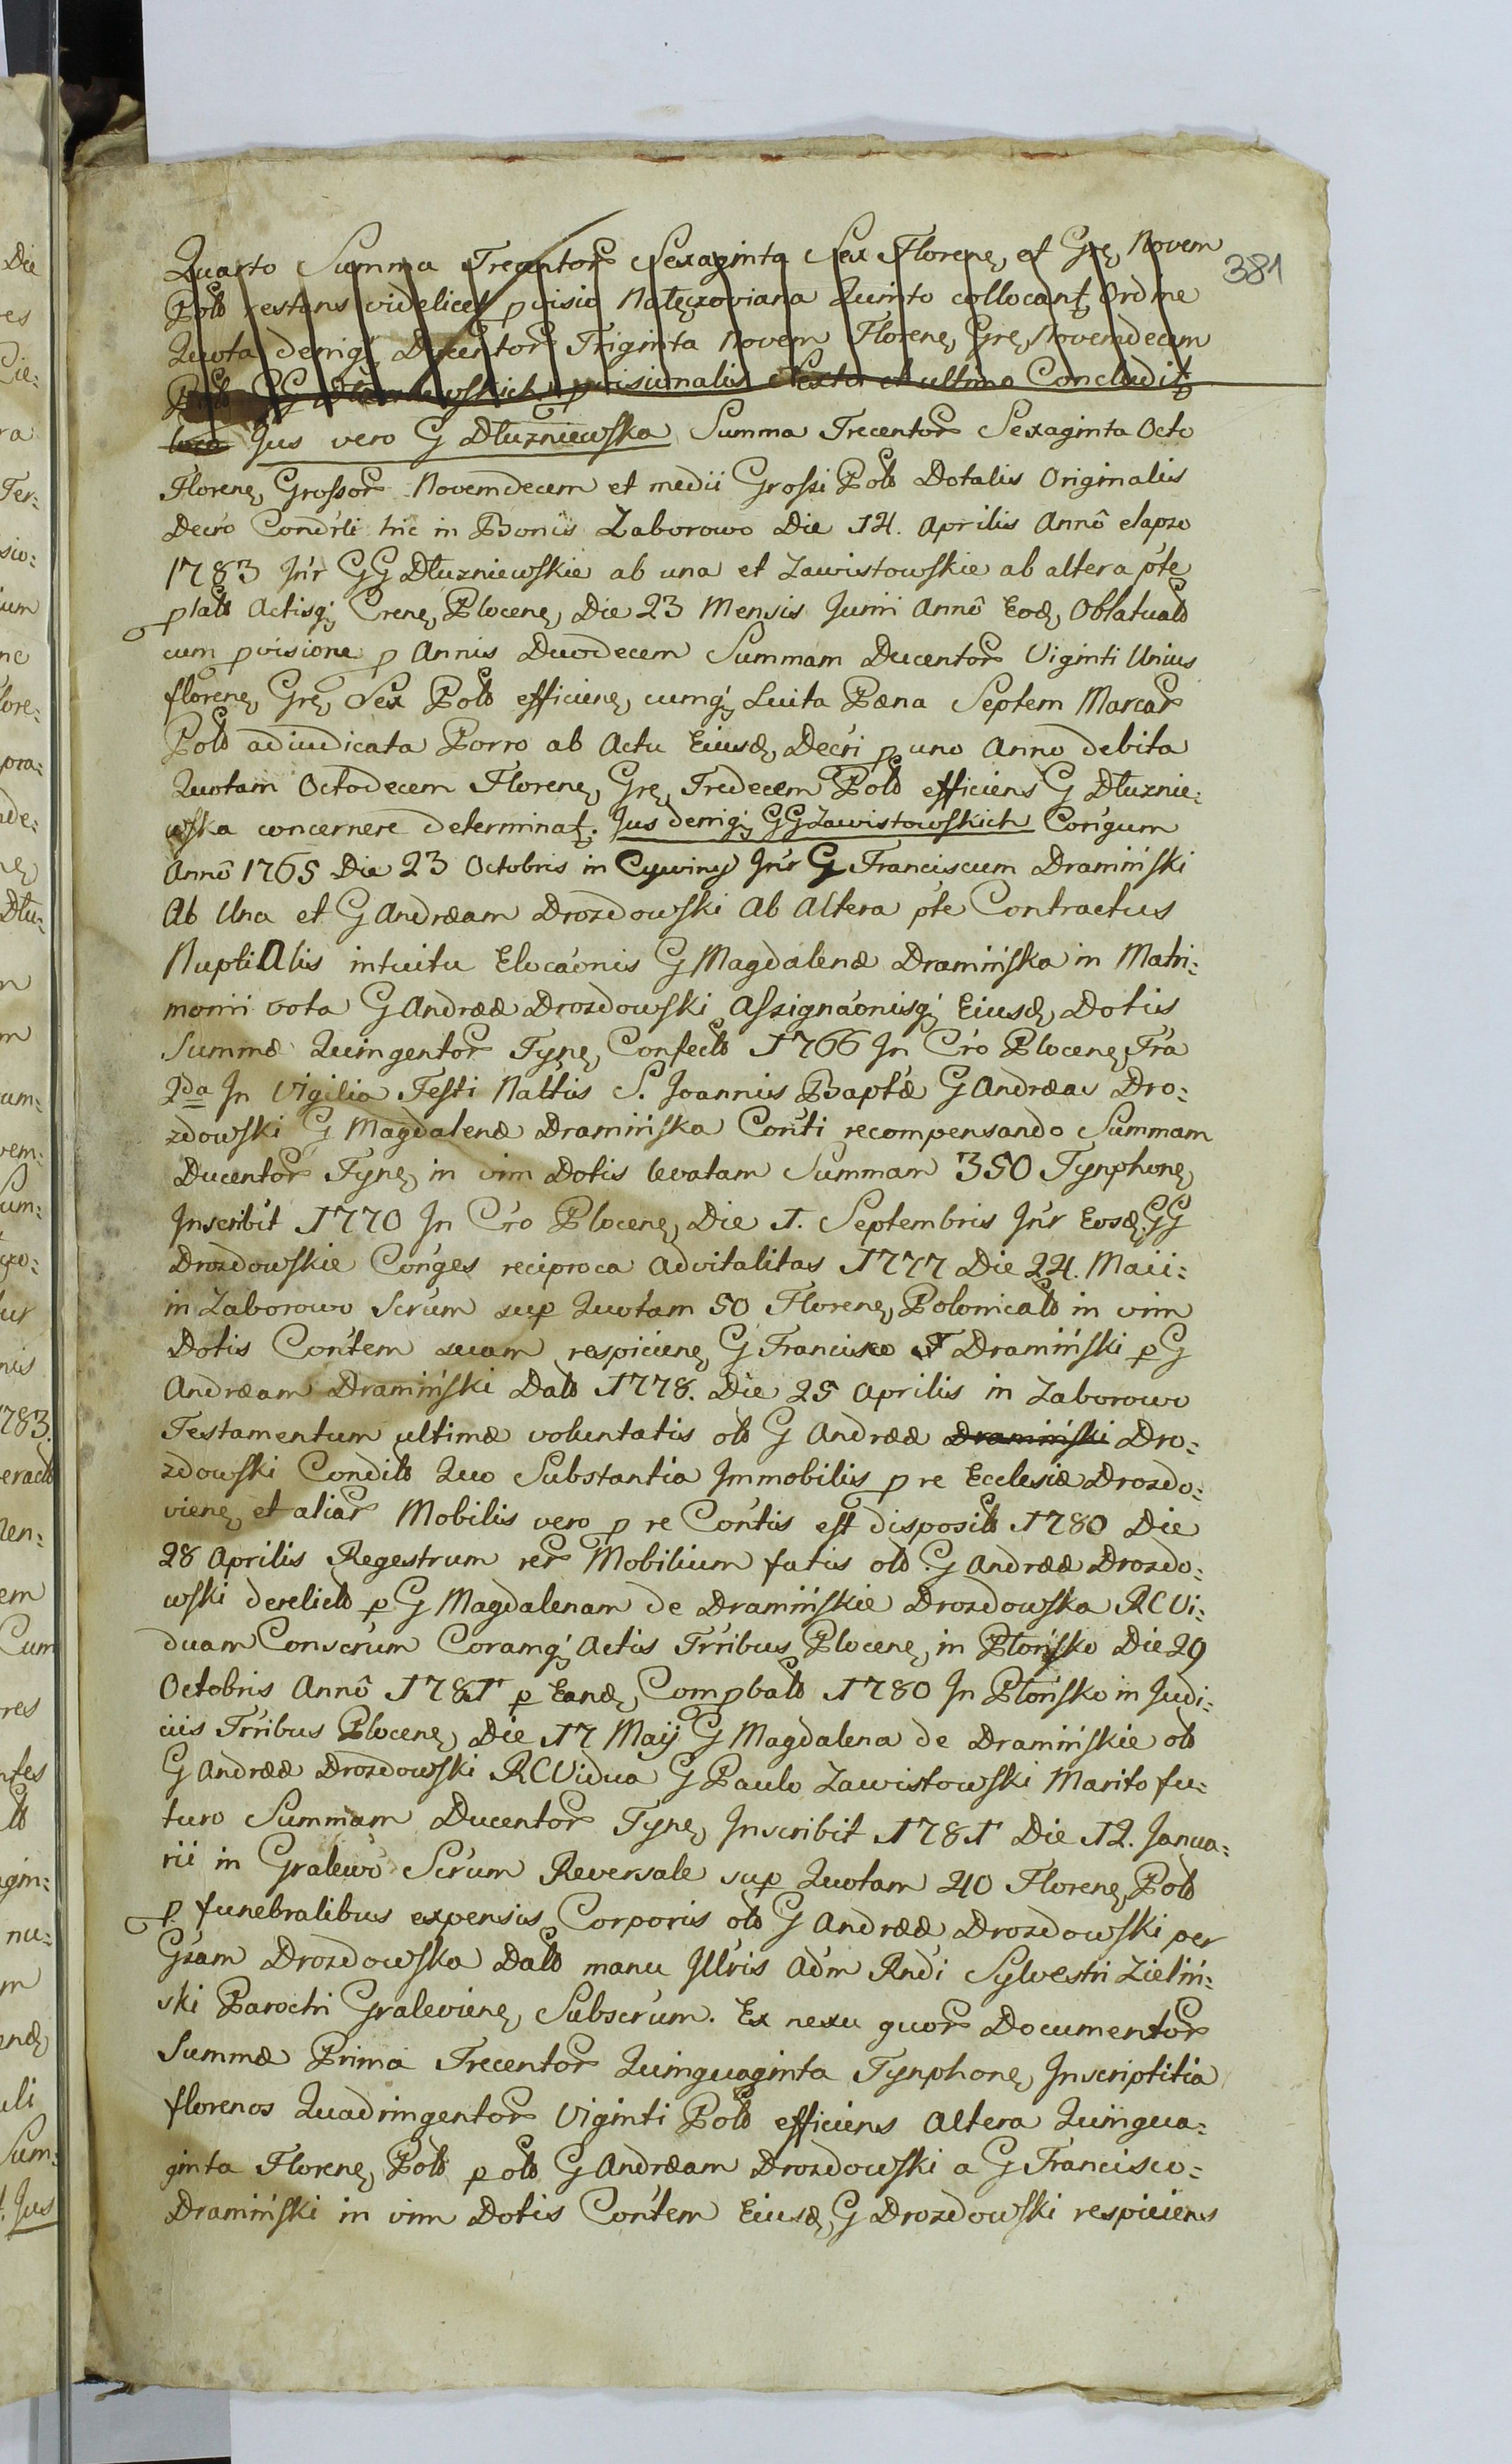 381
Quarto Summa Trecentor Sexaginta Sex Floren, et Gr, Novem
Pol restans videlicet pvisio Natęczoviana Quinto collocant, Ordine
Quota deniq; Ducentor Triginta Novem Floren, Gr, Novemdecem
pvisionalis Sexto et ultimo Concludit,
loco Jus vero G Dłuzniewska Summa Trecentor Sexaginta Octo
Floren, Grossor Novemdecem et medii Grossi Pol Dotalis Originalis
Decro Condrli hic in Bonis Zaborowo Die 14. Aprilis Annô elapso
1783 Inr GG Dłuzniewskie ab una et Zawistowskie ab altera pte
plat Actisq; Cren, Plocen, Die 23 Mensis Junii Annô Eod, Oblatuat
cum pvisione p Annis Duodecem Summam Ducentor Viginti Unius
floren, Gr, Sex Pol efficien, cumq; Luita Pæna Septem Marcar
Pol adiudicata Porro ab Actu Eiusd, Decri p uno Anno debita
Quotam Octodecem Floren, Gr, Tredecem Pol efficiens G Dłuznie:
wska concernere determinat, Jus deniq; GG Zawistowskich Conigum
Annô 1765 Die 23 Octobris in Cywiny Inr G Franciscum Dramiński
Ab Una et G Andræam Drozdowski Ab Altera pte Contractus
Nuptialis intuitu Elocáonis G Magdalenæ Dramińska in Matri:
monii vota G Andrææ Drozdowski Assignáonisq; Eiusd, Dotis
Summæ Quingentor Tyn, Confect 1766 In Cro Plocen, Fra
2da In Vigilia Festi Nattis S. Joannis Baptæ G Andræas Dro:
zdowski G Magdalenæ Dramińska Conti recompensando Summam
Ducentor Tyn, in vim Dotis levatam Summam 350 Tynphon,
Inscribit 1770 In Cro Plocen, Die 1. Septembris Inr Eosd, GG
Drozdowskie Conges reciproca Advitalitas 1777 Die 24. Maii:
in Zaborowo Scrum sup Quotam 50 Floren, Polonicat in vim
Dotis Contem suam respicien, G Francisco Dramiński p G
Andræam Dramiński Dat 1778. Die 25 Aprilis in Zaborowo
Testamentum ultimæ voluntatis ol G Andrææ Dramiński Dro:
zdowski Condit Quo Substantia Immobilis p re Ecclesiæ Drozdo:
vien, et aliar Mobilis vero p re Contis est disposit 1780 Die
28 Aprilis Regestrum rer Mobilium fatis ol G Andrææ Drozdo:
wski derelict p G Magdalenam de Dramińskie Drozdowska RC Vi:
duam Conscrum Coramq; Actis Trribus Plocen, in Płońsko Die 29
Octobris Annô 1781 p Eand, Compbat 1780 In Płońsko in Judi:
ciis Trribus Plocen, Die 17 Maij G Magdalena de Dramińskie ol
G Andrææ Drozdowski RC Vidua G Paulo Zawistowski Marito fu:
turo Summam Ducentor Tyn, Inscribit 1781 Die 12. Janua:
rii in Gralewo Scrum Reversale sup Quotam 40 Floren, Pol
p funebralibus expensis Corporis ol G Andrææ Drozdowski per
Gsam Drozdowska Dat manu Illris Adm Rndi Sylvestri Zieliń:
ski Parochi Gralevien, Subscrum. Ex nexu quor Documentor
Summæ Prima Trecentor Quinquaginta Tynphon, Inscriptitia
florenos Quadringentor Viginti Pol efficiens Altera Quinqua:
ginta Floren, Pol p ol G Andræam Drozdowski a G Francisco:
Dramiński in vim Dotis Contem Eiusd, G Drozdowski respiciens